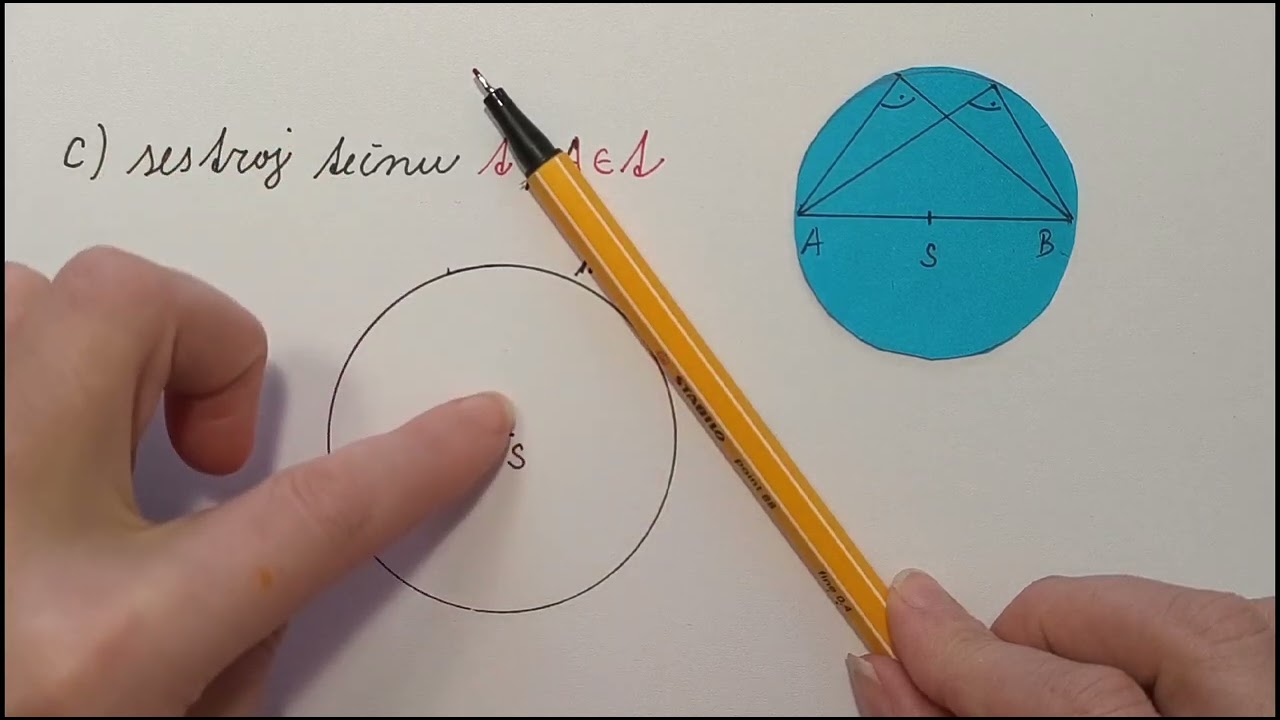 c) sestroj tečnu t, A ∈ t
A S B
k
S
STABILO point 88 fine 0,4